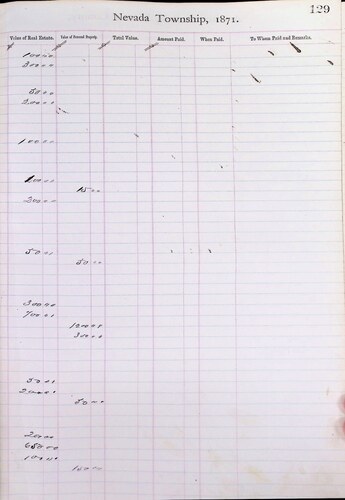 129
Nevada Township, 1871.
Value of Real Estate. Value of Personal Property. Total Value. Amount Paid. When Paid. To Whom Paid and Remarks.
100 00
300 00
50 00
200 00
100 00
100 00
15 00
200 00
50 00
50 00
300 00
700 00
1000 00
300 00
50 00
50 00
200 00
650 00
100 00